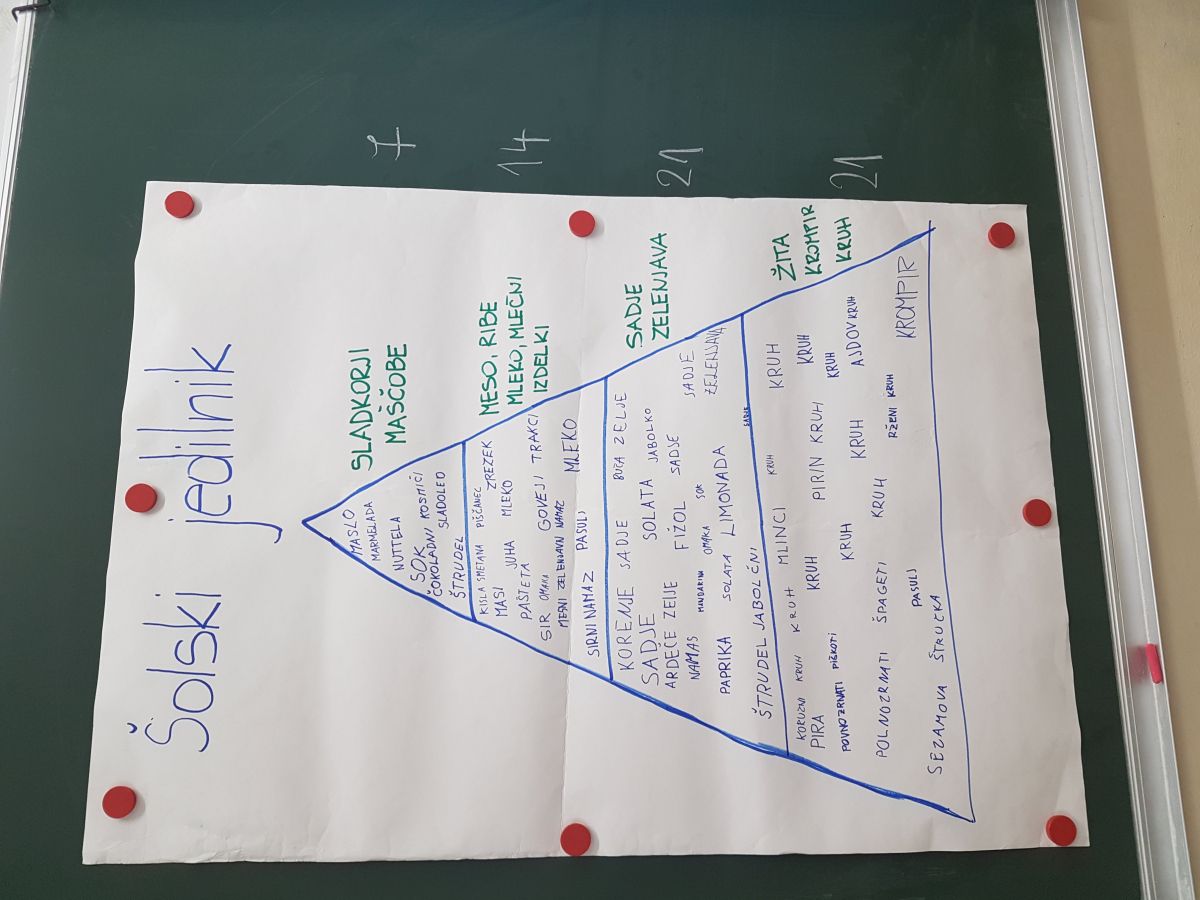 Šolski jedilnik
SLADKORJI
MAŠČOBE
7
MASLO
MARMELADA
NUTTELA
SOK
ČOKOLADNI KOSMIČI
ŠTRUDEL SLADOLED
MESO, RIBE
MLEKO, MLEČNI
IZDELKI
14
KISLA SMETANA PIŠČANEC
MASI JUHA MLEKO ZREZEK
PAŠTETA
SIR OMAKA GOVEJI TRAKCI
MESNI ZELENJAVN NAMAZ
SIRNI NAMAZ PASULJ MLEKO
SADJE
ZELENJAVA
21
KORENJE SADJE BUČA ZELJE
SADJE SOLATA JABOLKO
ARDEČE ZELJE FIŽOL SADJE SADJE
NAMAS MANDARINA OMAKA SOK ZELENJAVA
PAPRIKA SOLATA LIMONADA
SADJE
ŠTRUDEL JABOLČNI
ŽITA
KROMPIR
KRUH
21
MLINCI KRUH KRUH
KORUZNI KRUH KRUH
PIRA KRUH PIRIN KRUH KRUH
POVNOZRNATI PIŠKOTI KRUH KRUH KRUH
AJDOV KRUH
POLNOZRNATI ŠPAGETI KRUH RŽENI KRUH
PASULJ KROMPIR
SEZAMOVA ŠTRUČKA